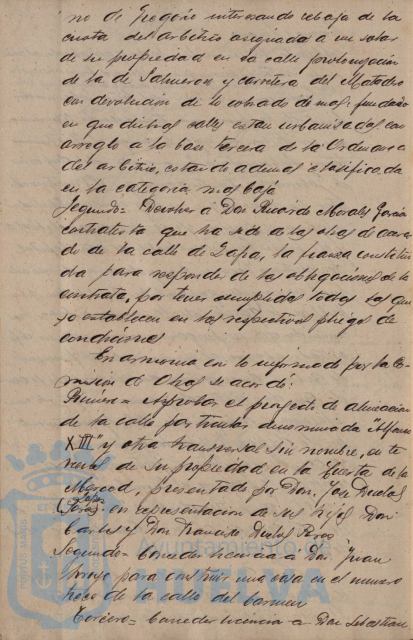 no de Gregorio interesando rebaja de la
cuota del arbitrio asignada á un solar
de su propiedad en la calle prolongación
de la de Salmeron y carretera del Matadero
con devolucion de lo cobrado de mas, fundado
en que dichas calles estan urbanizadas con
arreglo á la base tercera de la Ordenanza
del arbitrio, estando ademas clasificada
en la categoria mas baja
Segundo = Devolver á Don Ricardo Morales García
contratista que ha sido de las obras de
do de la calle de Zafra, la fianza constitui
da para responder de las obligaciones de la
contrata, por tener cumplidas todas las que
se establecen en los respectivos pliegos de
condiciones
En armonia con lo informado por la Co-
mision de Obras se acordó:
Primero = Aprobar el proyecto de alineacion
de la calle particular denominada "Alfonso
XIII" y otra transversal sin nombre, en te
rrenos de su propiedad en la Huerta de la
Merced, presentado por Don José
en representacion de sus hijos Don
Carlos y Don Francisco
Segundo = Conceder licencia á Don Juan
para construir una casa en el numero
de la calle del Carmen
Tercero = Conceder licencia a Don Sebastian
HUELVA